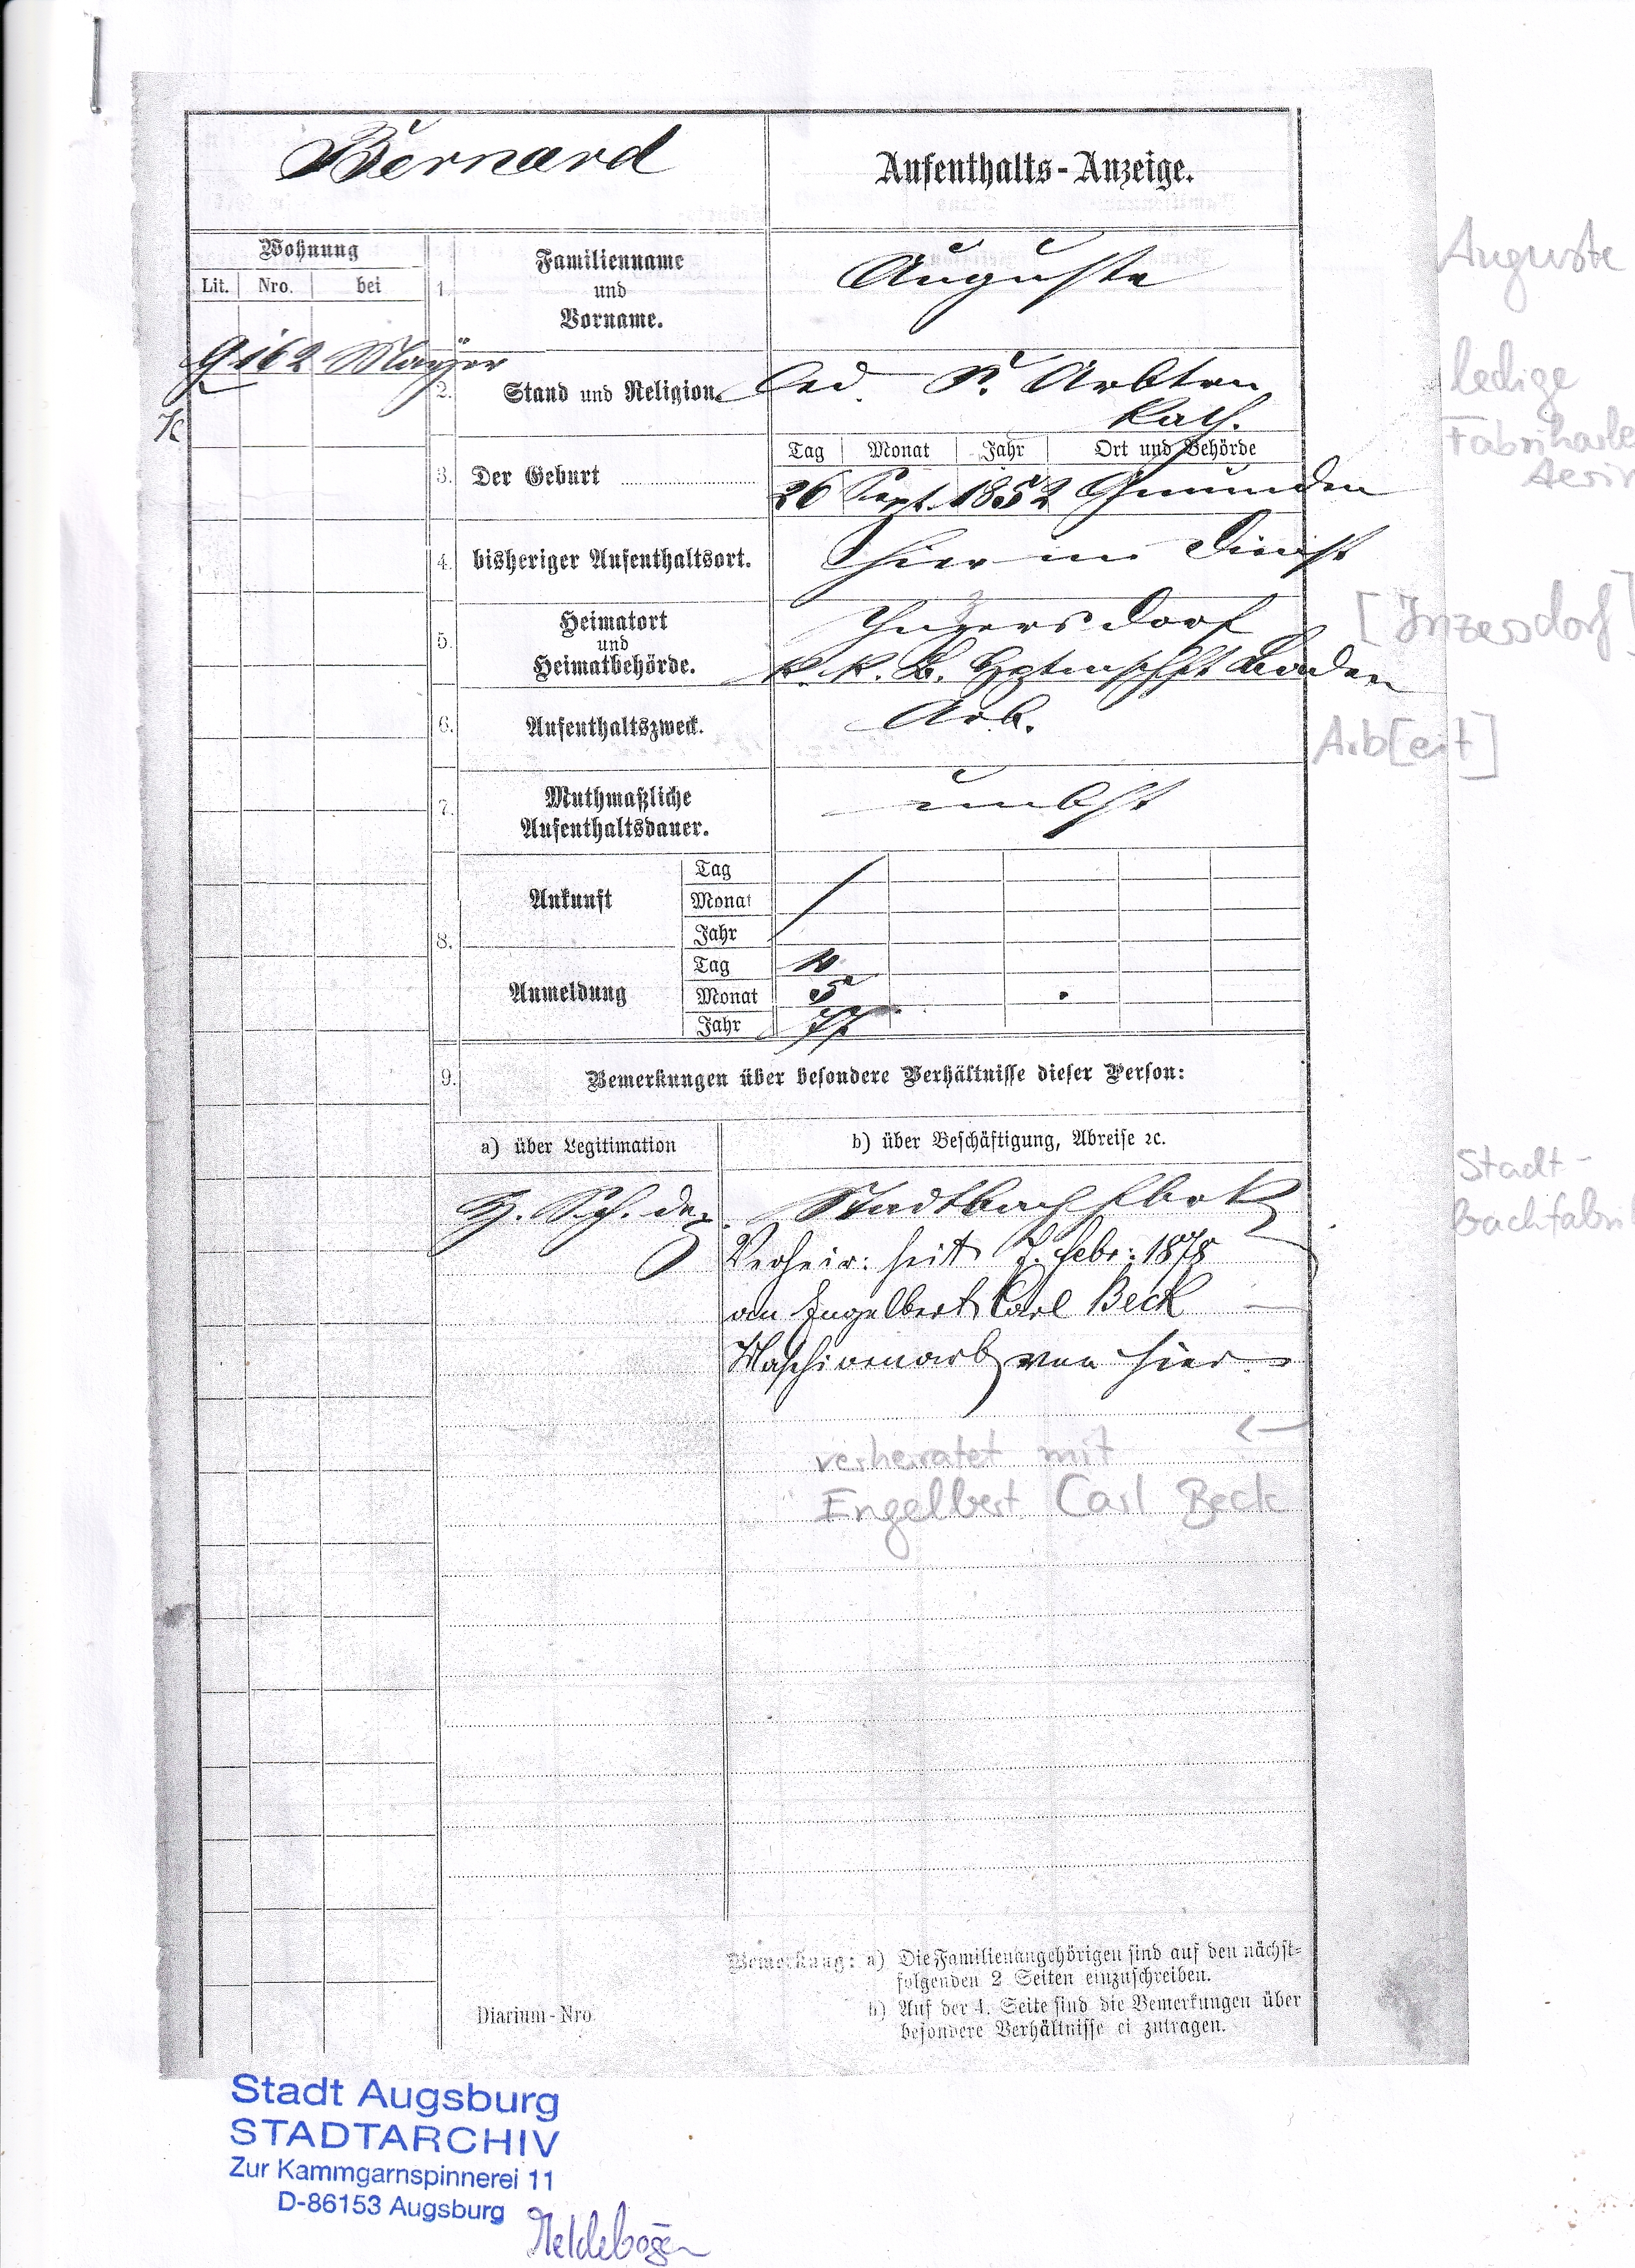 Bernard
Aufenthalts-Anzeige.
Wohnung
Lit. Nro. bei
G 162 Mayer
K
1. Familienname
und
Vorname.
Auguste
Auguste
2. Stand und Religion.
led. Arbtrn
Kath.
ledige
Fabrikarbe
3. Der Geburt
Tag Monat Jahr Ort und Behörde
26 Sept. 1852 Gmunden
4. bisheriger Aufenthaltsort.
hier im Dienst
5. Heimatort
und
Heimatbehörde.
Inzersdorf
K. K. B. Hptmschft Baden
[Inzersdorf]
6. Aufenthaltszweck.
Arb.
Arb[eit]
7. Muthmaßliche
Aufenthaltsdauer.
unbst
8. Ankunft
Tag
Monat
Jahr
Anmeldung
Tag
Monat 5
Jahr 77
9. Bemerkungen über besondere Verhältnisse dieser Person:
a) über Legitimation
b) über Beschäftigung, Abreise ꝛc.
Stadtbach
Stadt-
bachfabri
Verheir: seit 7. Febr: 1878
an Engelbert Carl Beck
Maschinenarb von hier.
←
verheiratet mit
Engelbert Carl Beck
Bemerkung: a) Die Familienangehörigen sind auf den nächst-
folgenden 2 Seiten einzuschreiben.
b) Auf der 4. Seite sind die Bemerkungen über
besondere Verhältnisse ei zutragen.
Diarium-Nro.
Stadt Augsburg
STADTARCHIV
Zur Kammgarnspinnerei 11
D-86153 Augsburg
Meldebogen